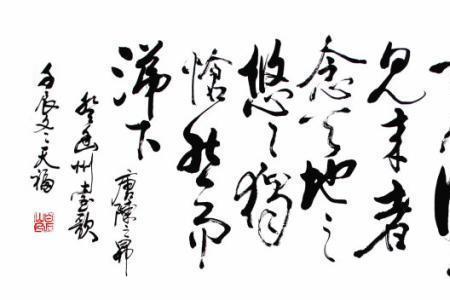 见来者
念天地之
悠々獨
愴然而
涕下
唐陳子昂
登幽州臺歌
壬辰冬天福